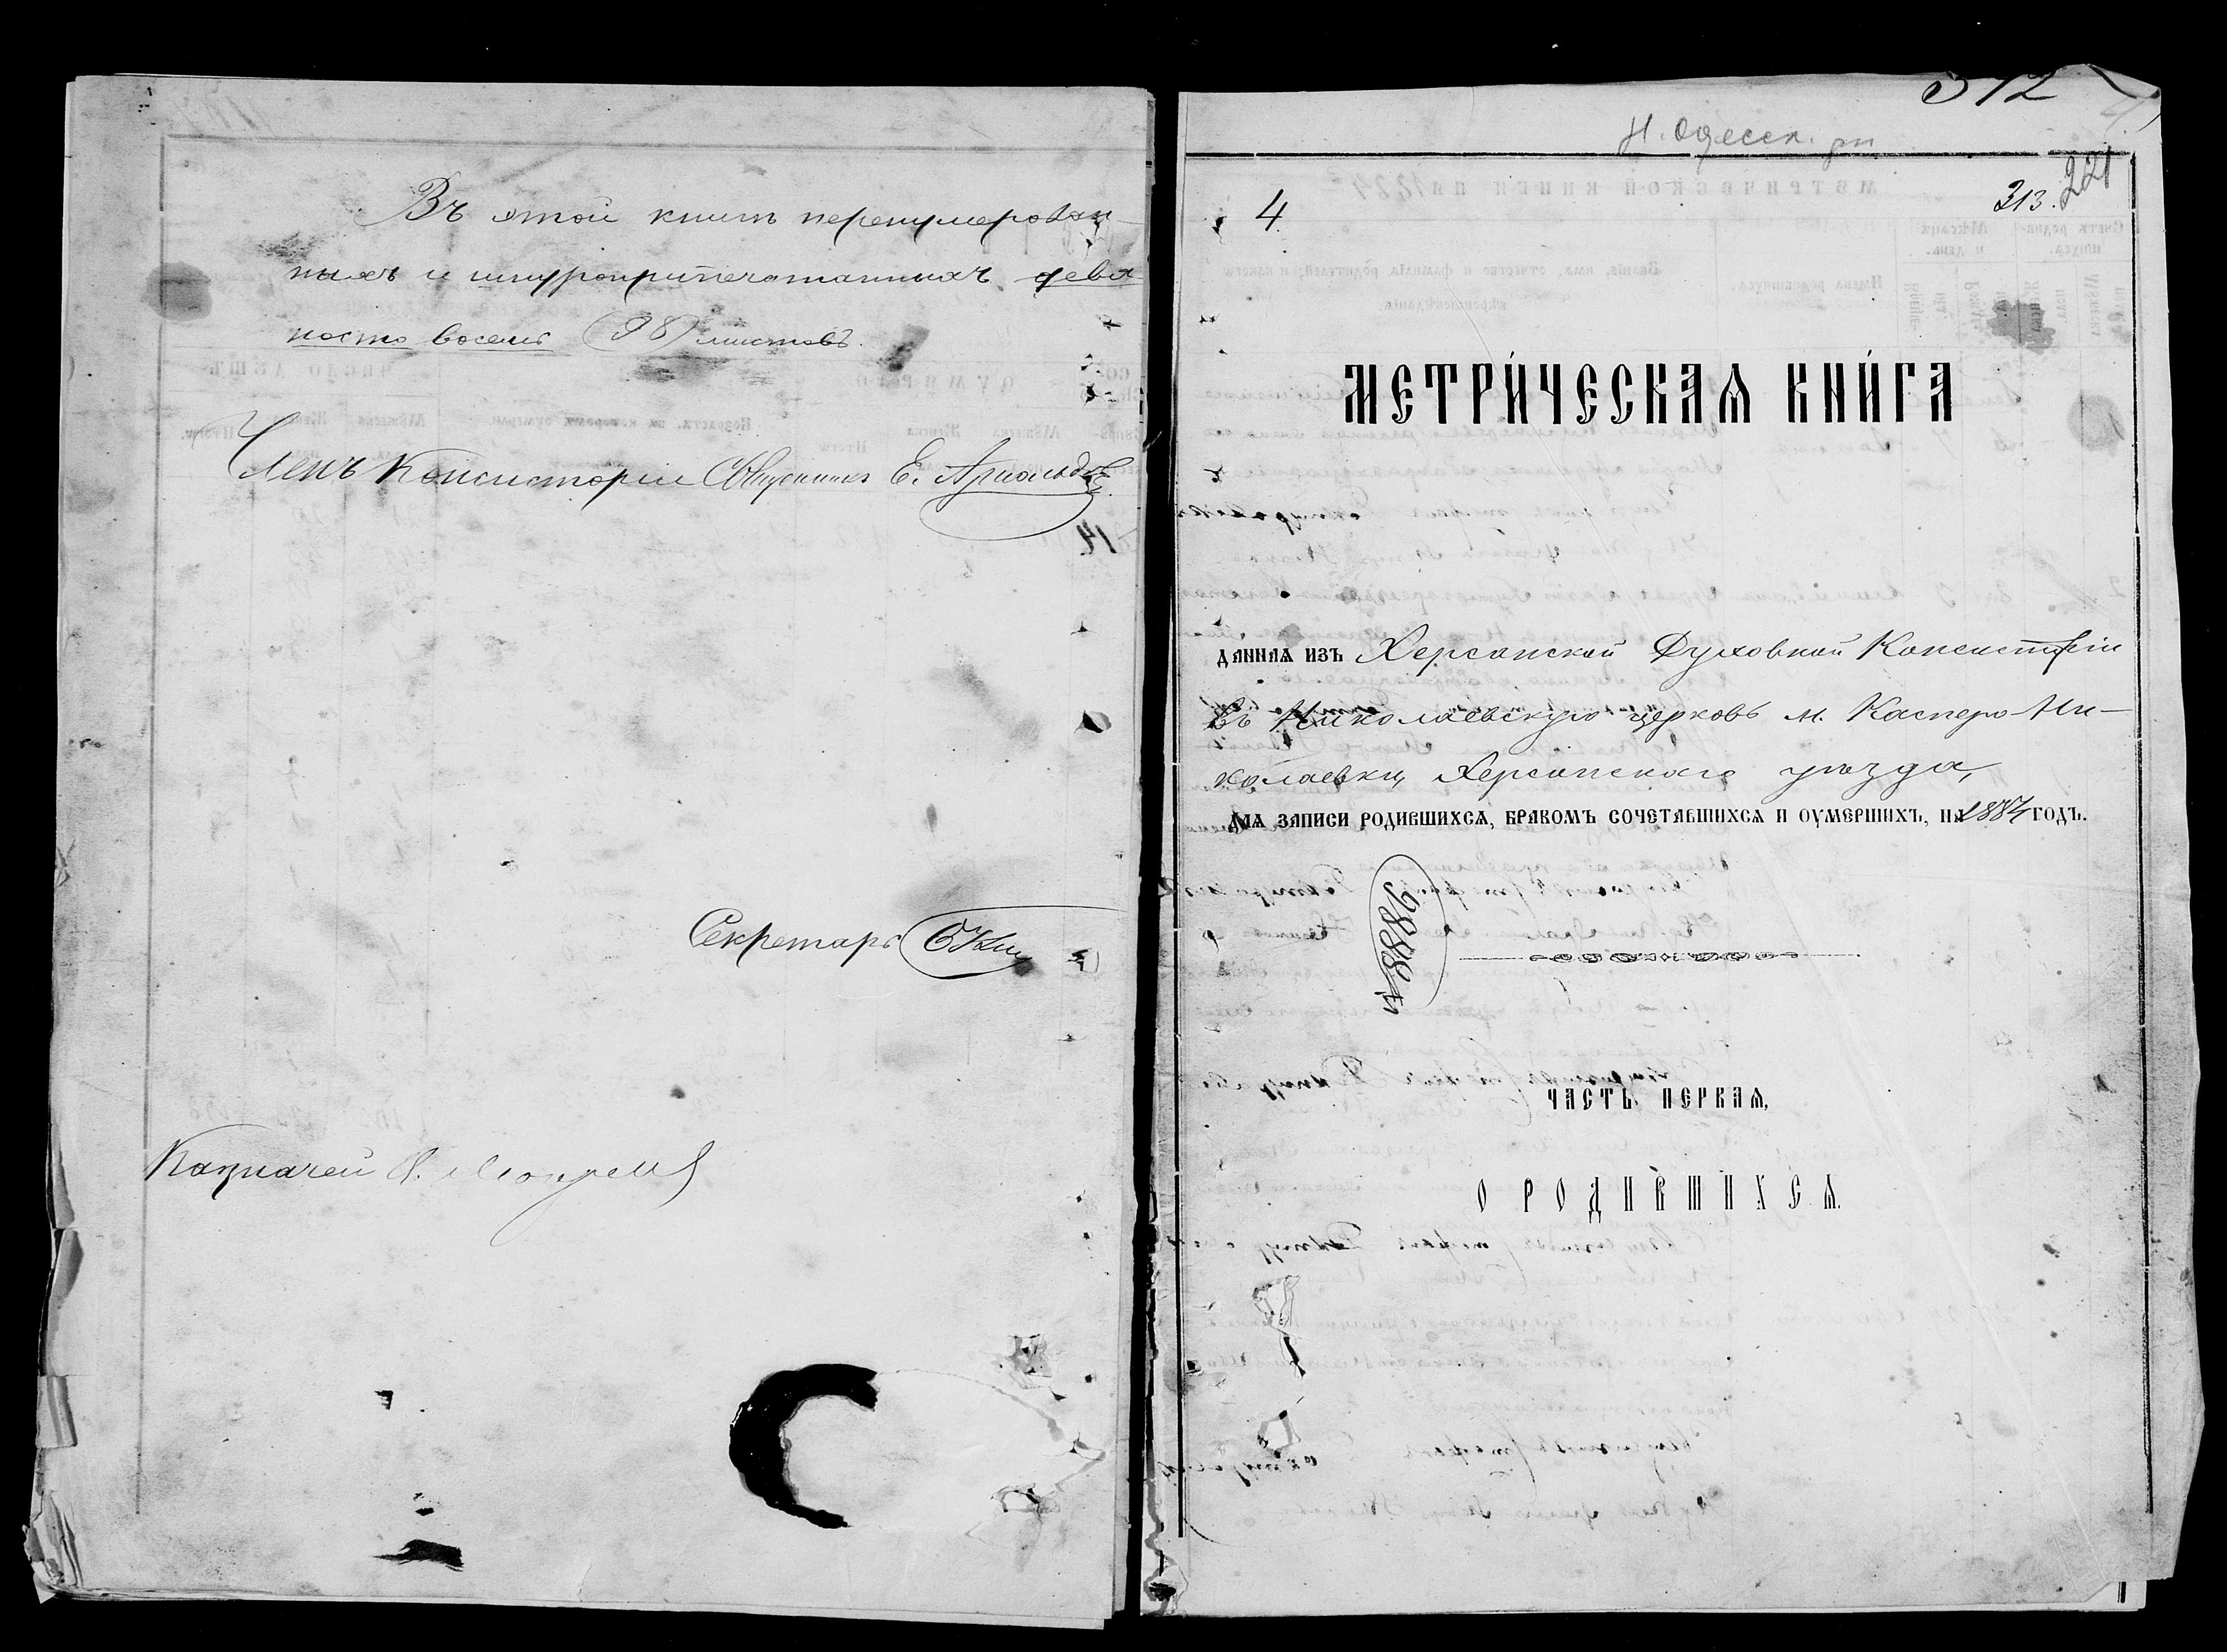 Въ этой книгѣ перенумерован-
ныхъ и шнуроприпечатанныхъ девя-
носто восемь (98) листовъ.
Членъ Консисторіи Священникъ Е. Арнольдовъ
Секретарь
Казначей
372
Н. Одесск. рн
221
313.
4
МЕТРИ́ЧЕСКАѦ КНИ́ГА
ДАННАѦ ИЗЪ Херсонской Духовной Консисторіи
въ Николаевскую церковь м. Касперо-Ни-
колаевки, Херсонскаго уѣзда,
ДЛѦ ЗАПИСИ РОДИВШИХСѦ, БРАКОМЪ СОЧЕТАВШИХСѦ И ОУМЕРШИХЪ, НА 1884 ГОДЪ.
ЧАСТЬ ПЕРВАѦ,
О РОДИВШИХСѦ.